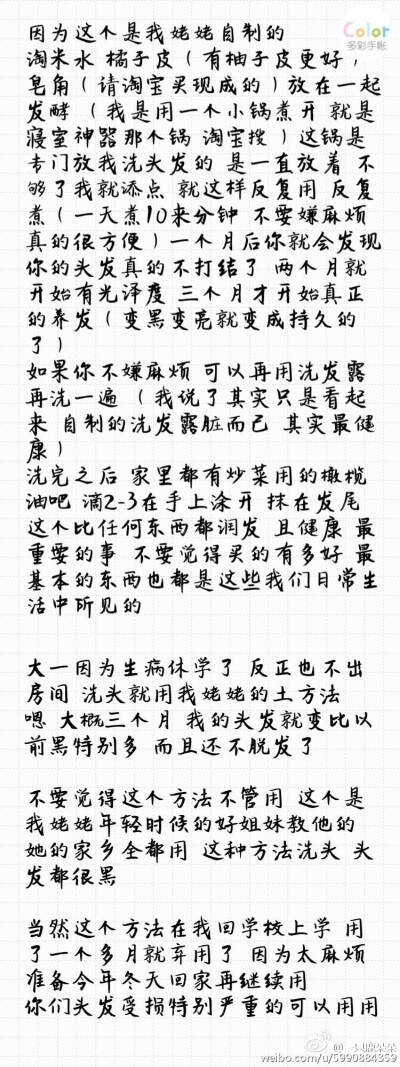 Color
多彩手帐
因为这个是我姥姥自制的
淘米水 橘子皮（有柚子皮更好，
皂角（请淘宝买现成的）放在一起
发酵（我是用一个小锅煮开 就是
寝室神器那个锅 淘宝搜）这锅是
专门放我洗头发的 是一直放着 不
够了我就添点 就这样反复用 反复
煮（一天煮10来分钟 不要嫌麻烦
真的很方便）一个月后你就会发现
你的头发真的不打结了 两个月就
开始有光泽度 三个月才开始真正
的养发（变黑变亮就变成持久的
了）
如果你不嫌麻烦 可以再用洗发露
再洗一遍（我说了其实只是看起
来 自制的洗发露脏而已 其实最健
康）
洗完之后 家里都有炒菜用的橄榄
油吧 滴2-3在手上涂开 抹在发尾
这个比任何东西都润发 且健康 最
重要的事 不要觉得买的有多好 最
基本的东西也都是这些我们日常生
活中所见的
大一因为生病休学了 反正也不出
房间 洗头就用我姥姥的土方法
嗯 大概三个月 我的头发就变比以
前黑特别多 而且还不脱发了
不要觉得这个方法不管用 这个是
我姥姥年轻时候的好姐妹教他的
她的家乡全都用 这种方法洗头 头
发都很黑
当然这个方法在我回学校上学 用
了一个多月就弃用了 因为太麻烦
准备今年冬天回家再继续用
你们头发受损特别严重的可以用用
weibo.com/u/5990884359